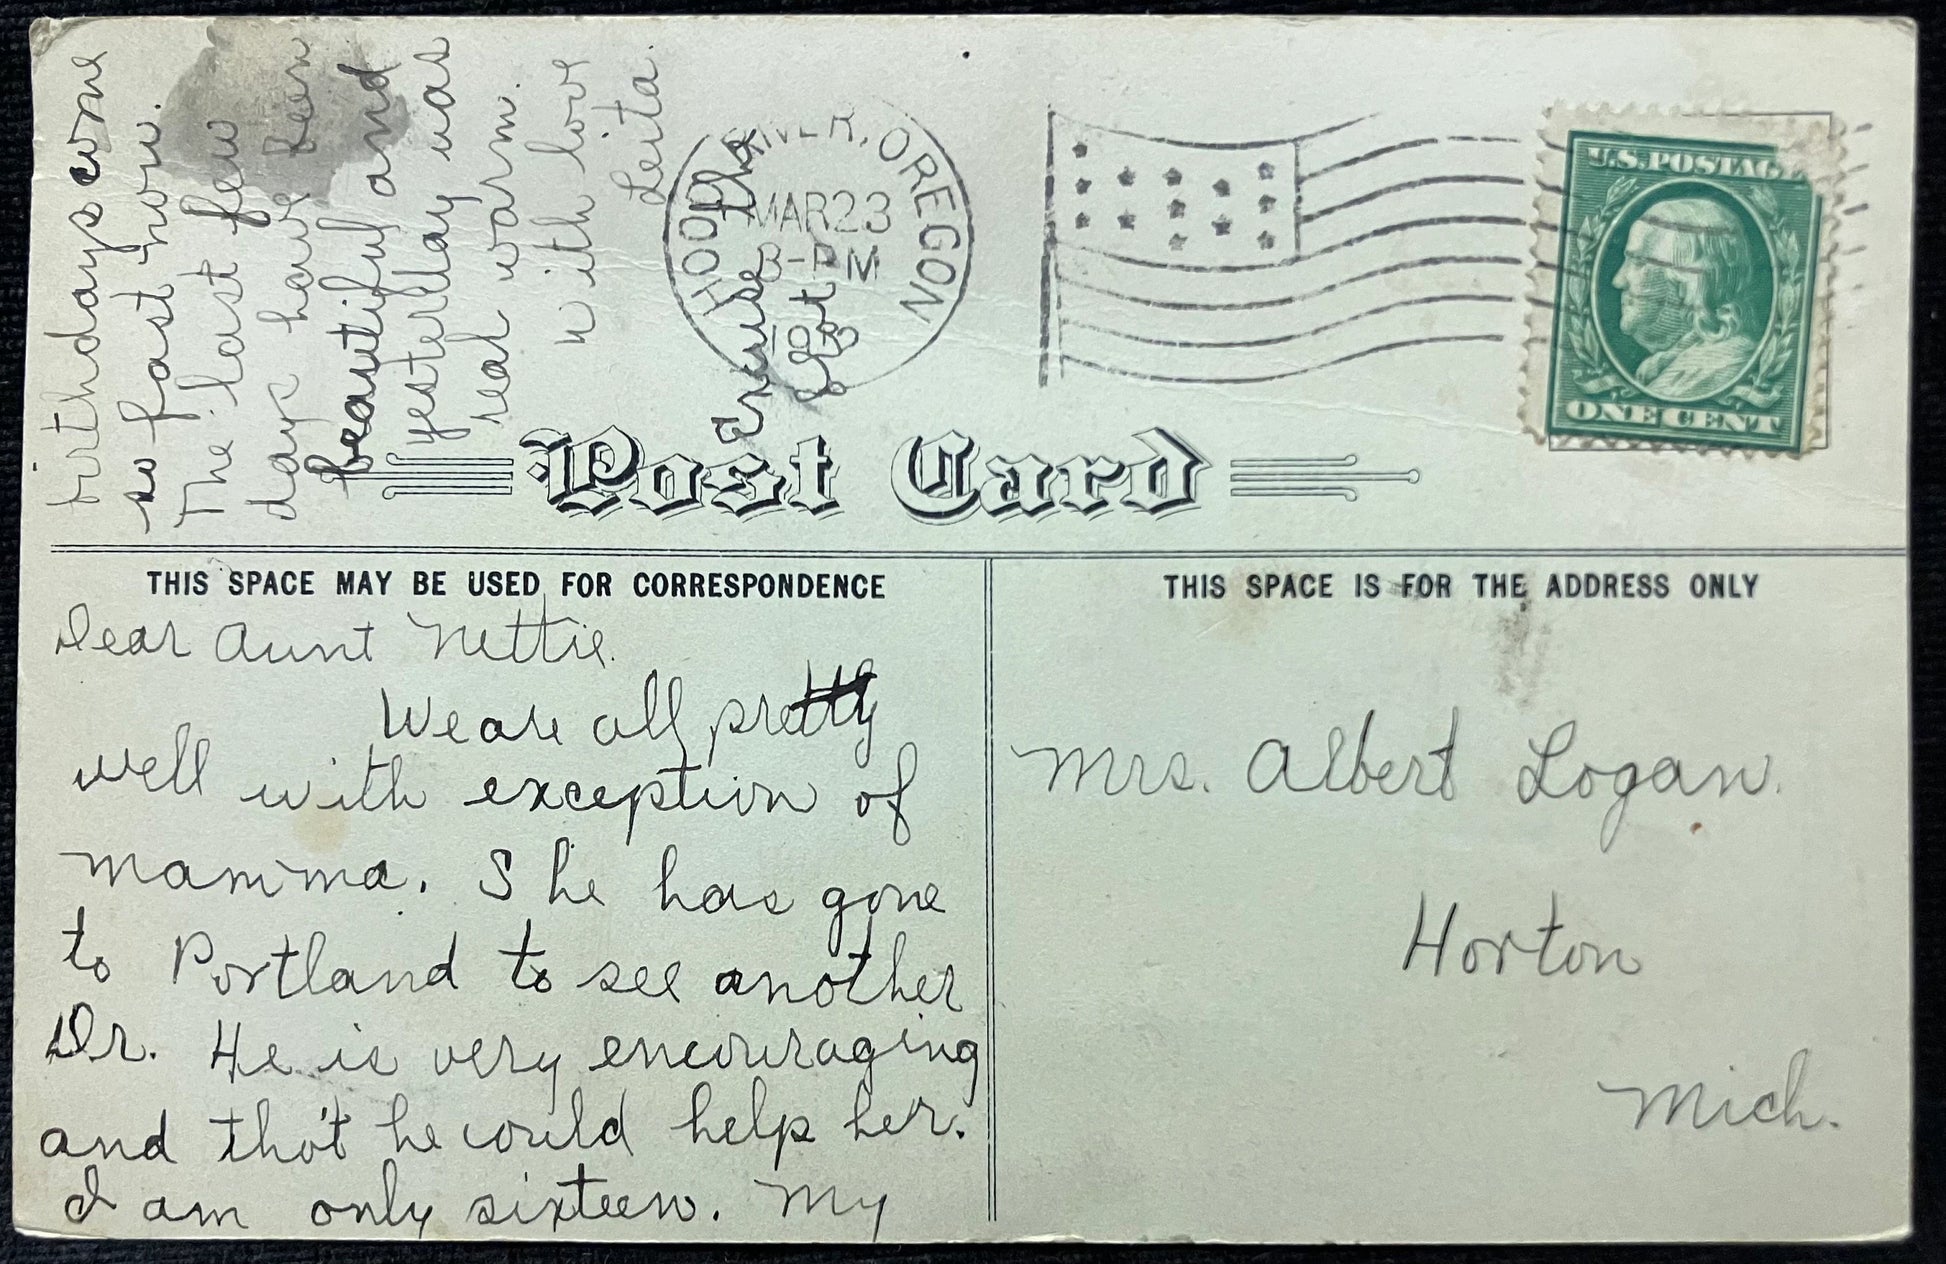 HOOD RIVER, OREGON
MAR 23
3-PM
U.S. POSTAGE
ONE CENT
Post Card
THIS SPACE MAY BE USED FOR CORRESPONDENCE
THIS SPACE IS FOR THE ADDRESS ONLY
Dear Aunt Nettie.
We are all pretty
well with exception of
mamma. She has gone
to Portland to see another
Dr. He is very encouraging
and tho't he could help her.
I am only sixteen. My
birthdays come
so fast now.
The last few
days have been
beautiful and
yesterday was
real warm.
with love
Leita.
Excuse the
blot
Mrs. Albert Logan.
Horton
Mich.